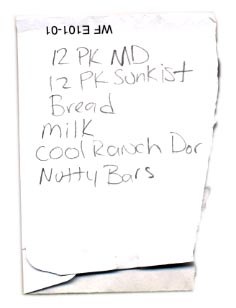 WF E101-01
12 PK MD
12 PK Sunkist
Bread
milk
Cool Ranch Dor
Nutty Bars